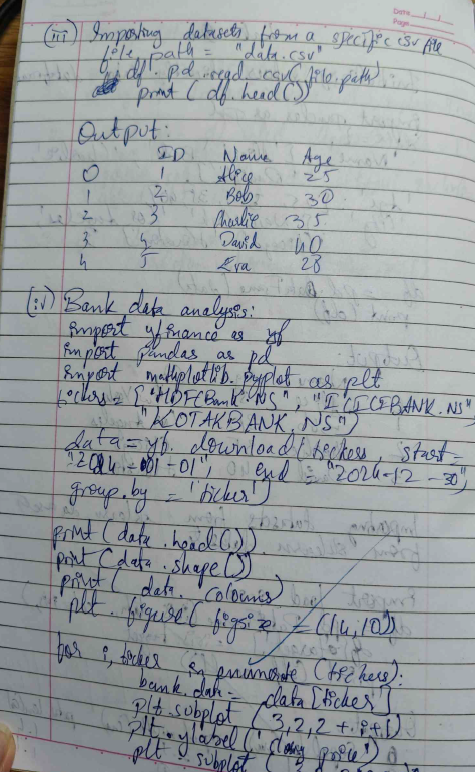 Date
Page
(iii) Importing datasets from a specific csv file
file path = "data.csv"
df. pd. read csv(file.path)
print (df.head())
Output:
ID Name Age
0 1 Alice 25
1 2 Bob 30
2 3 Charlie 35
3 4 David 40
4 5 Eva 28
(iv) Bank data analysis:
import yfinance as yf
import pandas as pd
import mathplotlib. pyplot as plt
tickers = ["HDFCBank.NS", "ICICIBANK.NS"
"KOTAKBANK.NS")
data = yb. download(tickers, start=
"2024-01-01" end = "2024-12-30",
group.by = 'ticker')
print (data.head())
print (data.shape())
print( data. coloums)
plt. figure( figsize = (14,10))
for i, ticker in enumerate (tickers):
bank.data = data[ticker]
plt.subplot (3,2,2 + i+1)
plt.ylabel(' price")
plt. subplot (